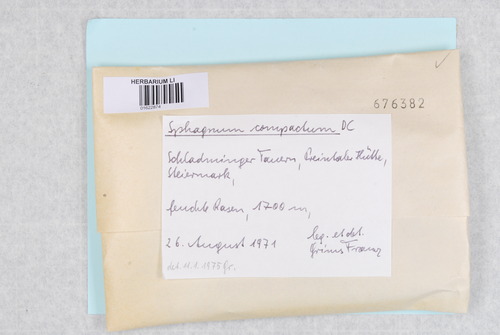 HERBARIUM LI
676382
Sphagnum compactum DC
Schladminger Tauern, Preintaler Hütte,
Steiermark,
feuchte Rasen, 1700 m,
26. August 1971
leg. et det.
Grims Franz
det. 11.1.1975 Gr.